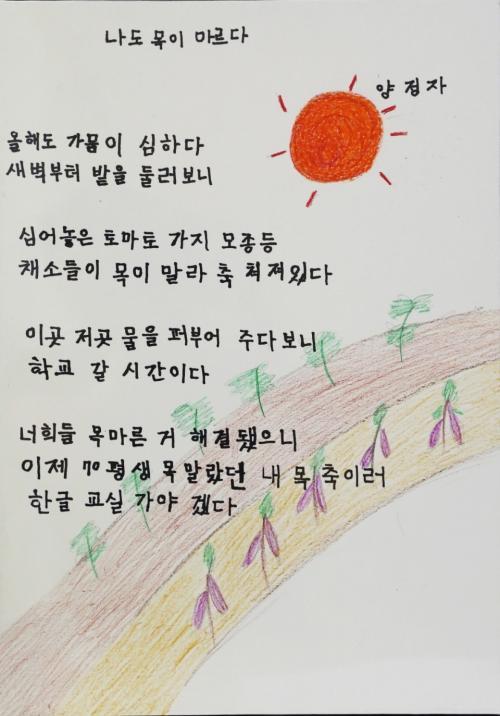 나도 목이 마르다
양점자
올해도 가뭄이 심하다
새벽부터 밭을 둘러보니
심어놓은 토마토 가지 모종등
채소들이 목이 말라 축 처져있다
이곳 저곳 물을 퍼부어 주다보니
학교 갈 시간이다
너희들 목마른 거 해결됐으니
이제 70평생 목말랐던 내 목 축이러
한글 교실 가야 겠다